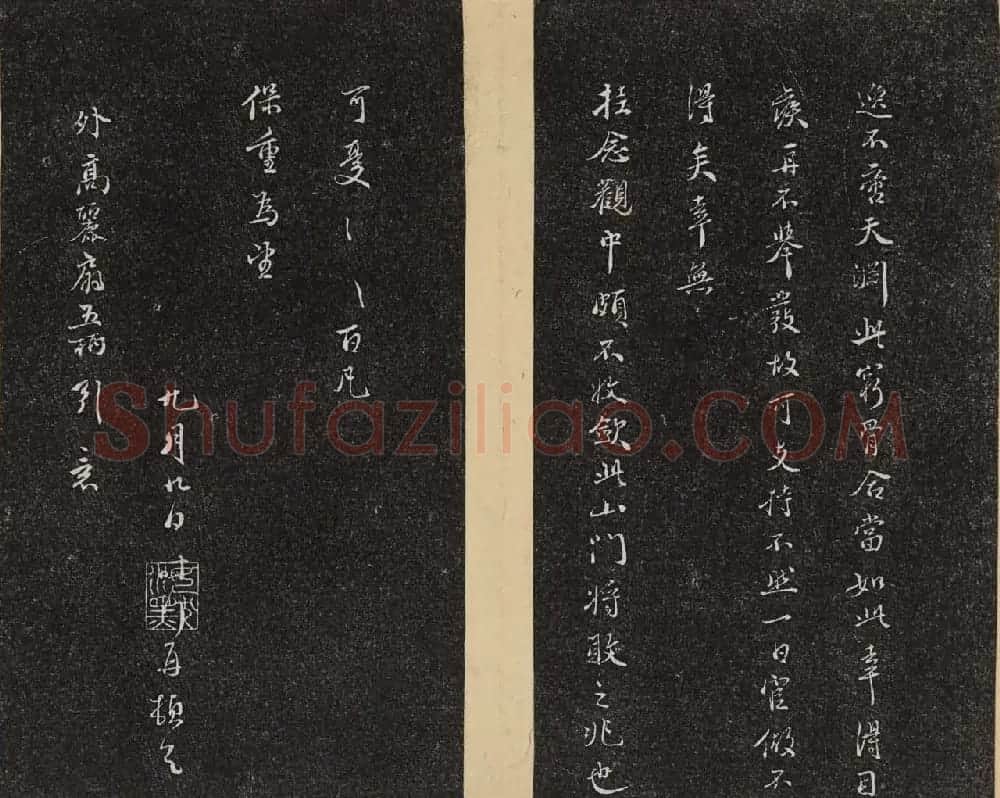 逸不啻天渊此穷骨合當如此幸得目
疾再不舉發故可支持不然一日官做不
得矣幸無
挂念觀中頗不收斂此山門將敗之兆也
可憂〻〻百凡
保重為望
九月九日再頓首
外高麗扇五柄引意
Shufaziliao.COM